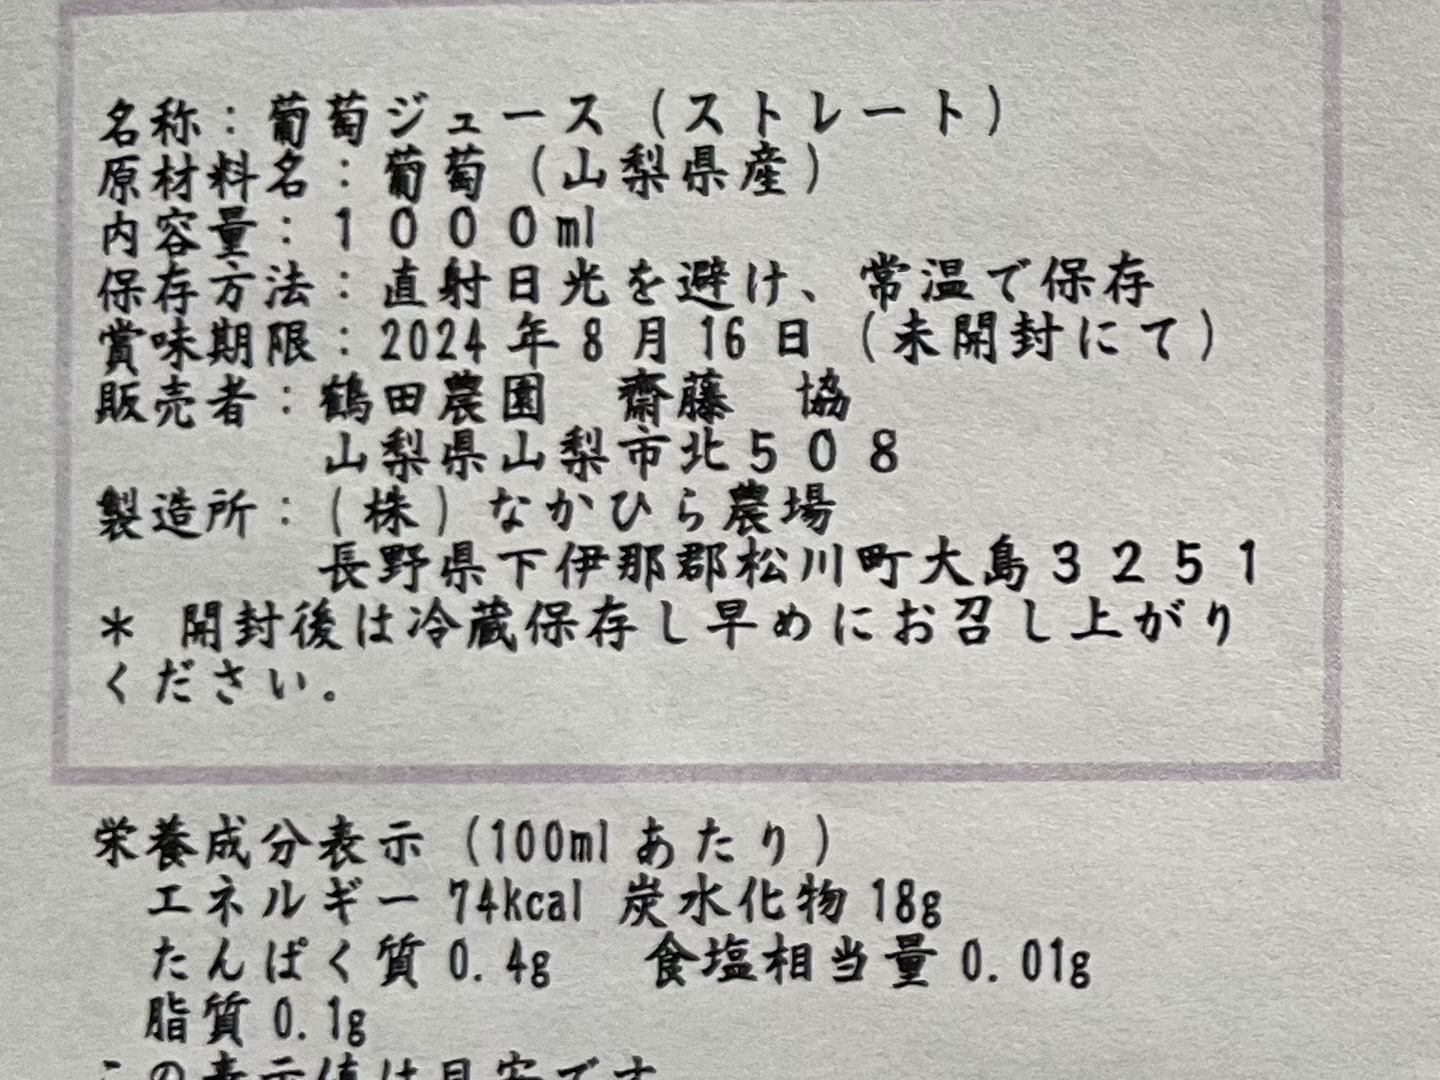 名称：葡萄ジュース（ストレート）
原材料名：葡萄（山梨県産）
内容量：１０００ml
保存方法：直射日光を避け、常温で保存
賞味期限：2024年8月16日（未開封にて）
販売者：鶴田農園　齋藤　協
山梨県山梨市北５０８
製造所：（株）なかひら農場
長野県下伊那郡松川町大島３２５１
＊ 開封後は冷蔵保存し早めにお召し上がり
ください。
栄養成分表示（100mlあたり）
エネルギー 74kcal 炭水化物 18g
たんぱく質 0.4g　食塩相当量 0.01g
脂質 0.1g
この表示値は目安です